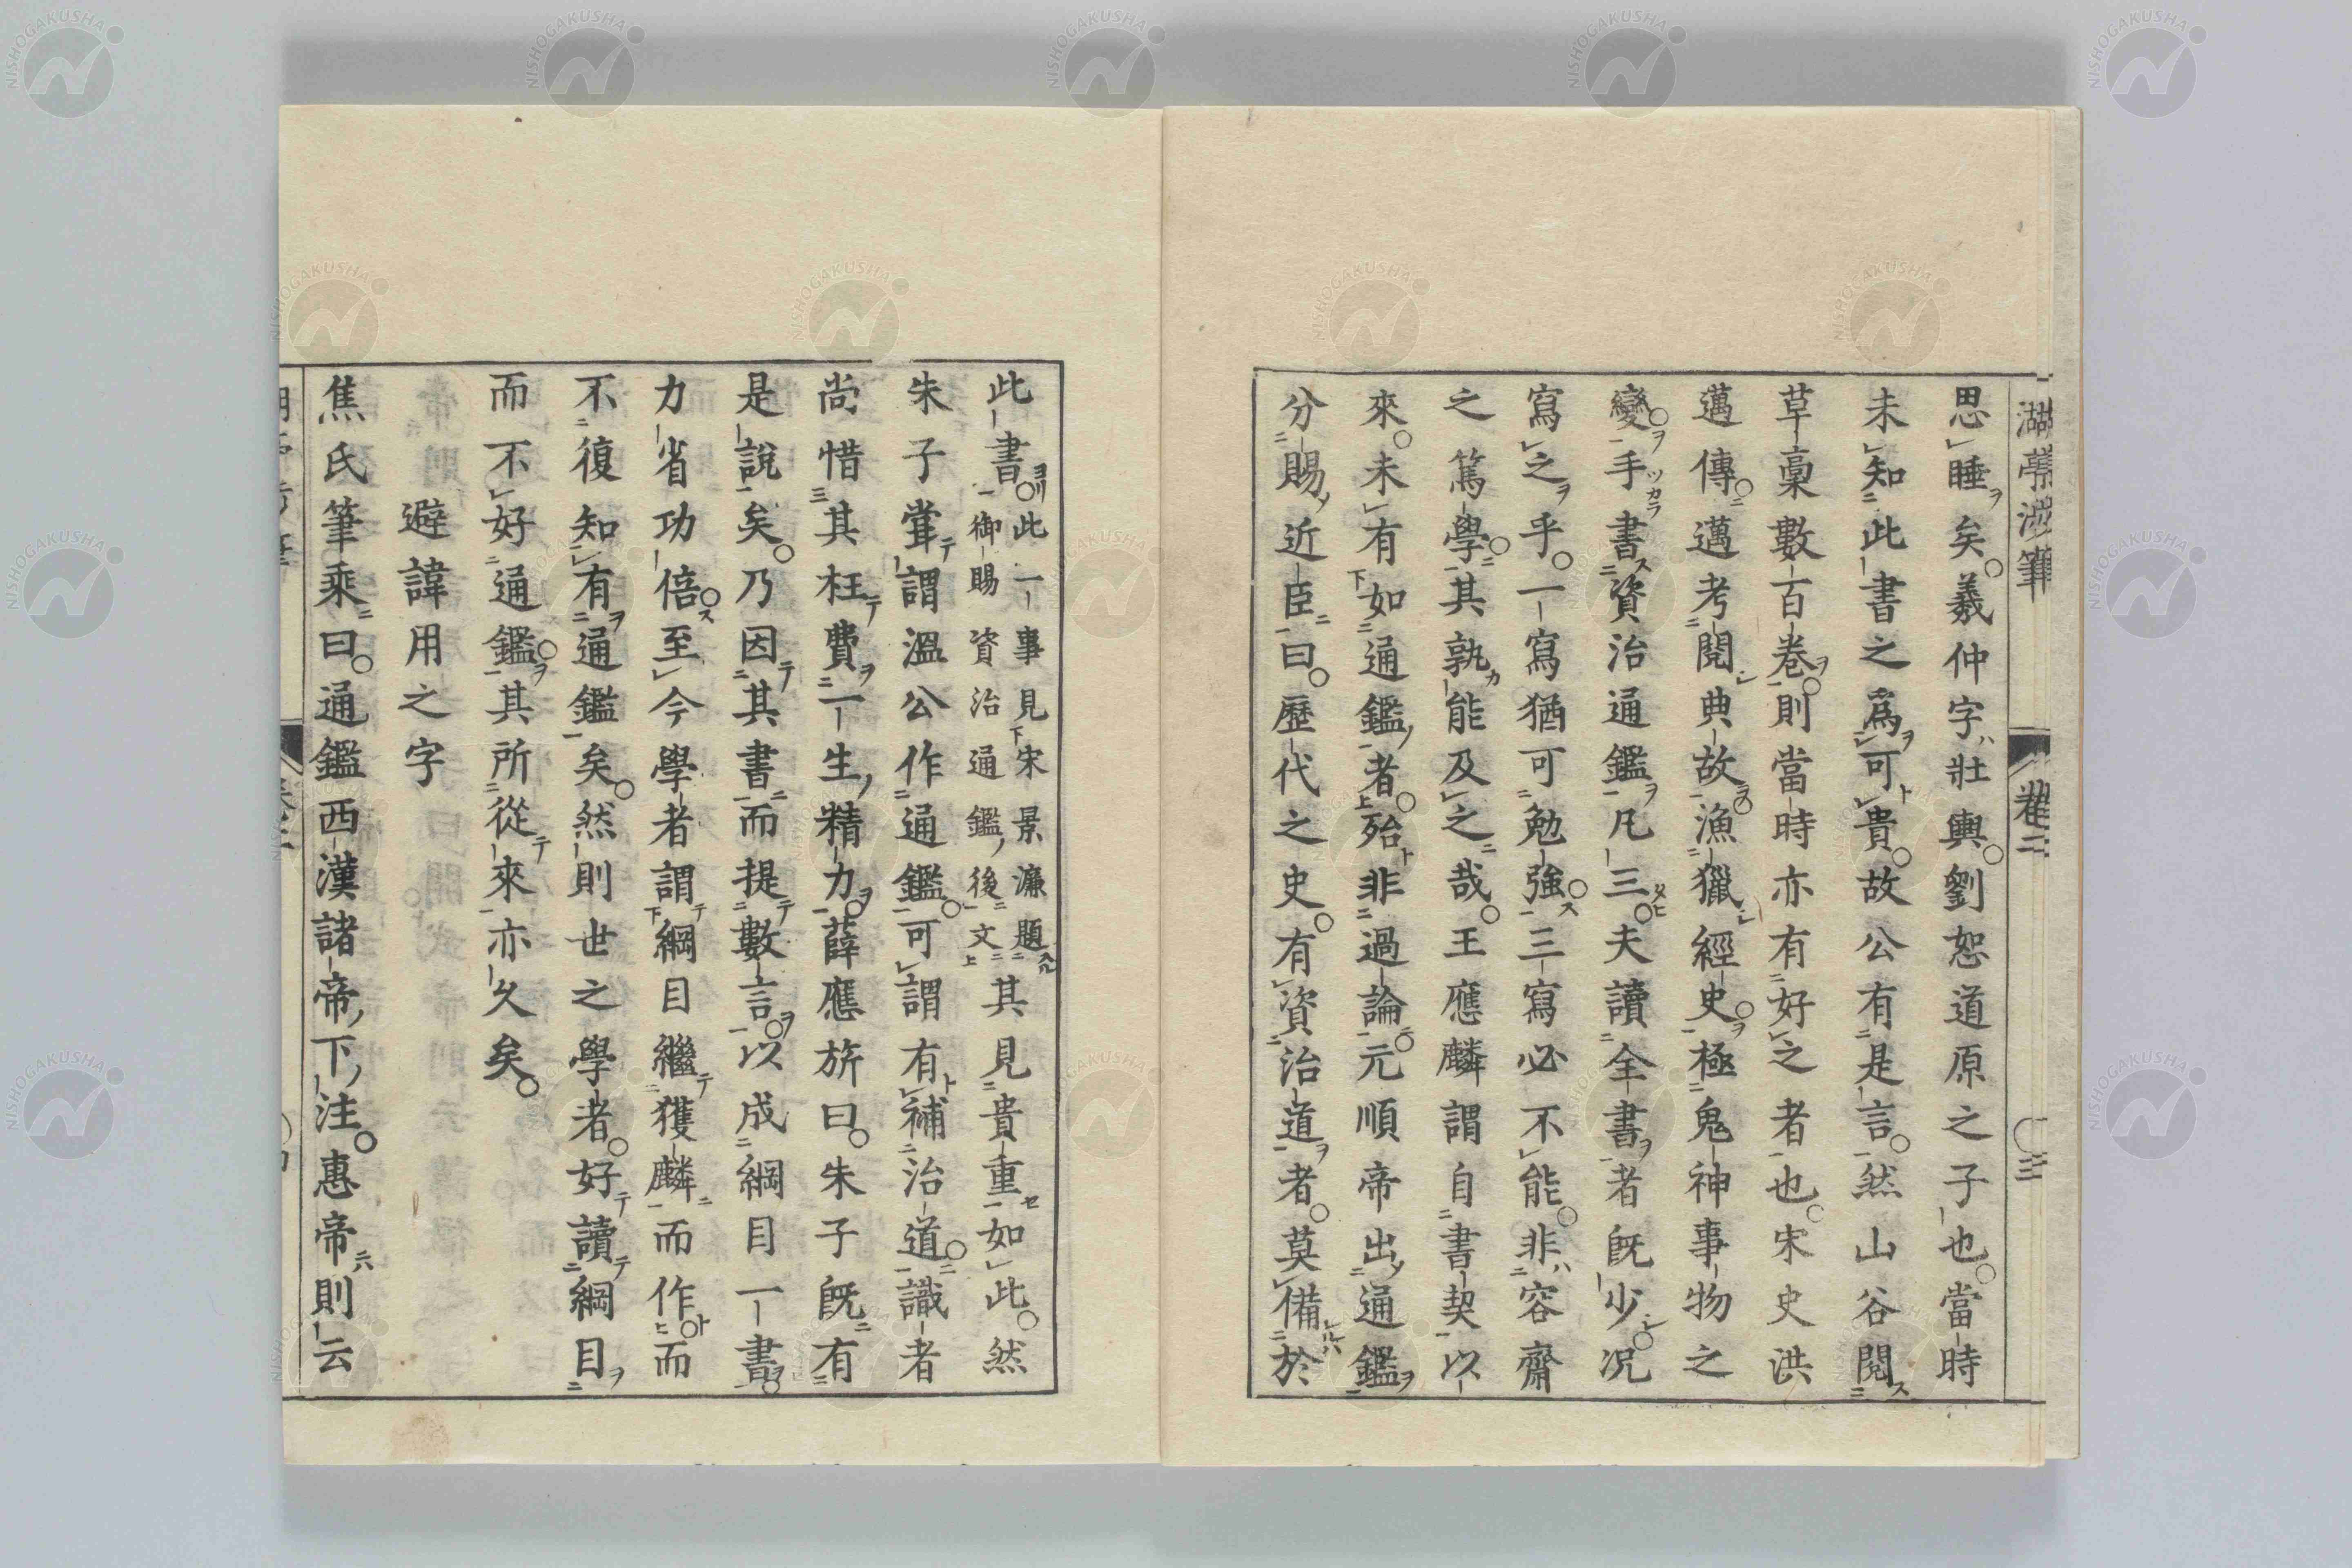 湖亭渉筆
卷二
三
思睡矣羲仲字壯輿劉恕道原之子也當時
未知此書之爲可貴故公有是言然山谷閱
草稾數百卷則當時亦有好之者也宋史洪
邁傳邁考閱典故漁獵經史極鬼神事物之
變手書資治通鑑凡三夫讀全書者既少况
寫之乎一寫猶可勉強三寫必不能非容齋
之篤學其孰能及之哉王應麟謂自書契以
來未有如通鑑者殆非過論元順帝出通鑑
分賜近臣曰歷代之史有資治道者莫備於
此書此一事見宋景濂題御賜資治通鑑後文其見貴重如此然
朱子甞謂溫公作通鑑可謂有補治道識者
尚惜其枉費一生精力薛應旂曰朱子既有
是說矣乃因其書而提數言以成綱目一書
力省功倍至今學者謂綱目繼獲麟而作而
不復知有通鑑矣然則世之學者好讀綱目
而不好通鑑其所從來亦久矣
避諱用之字
焦氏筆乘曰通鑑西漢諸帝下注惠帝則云
NISHOGAKUSHA